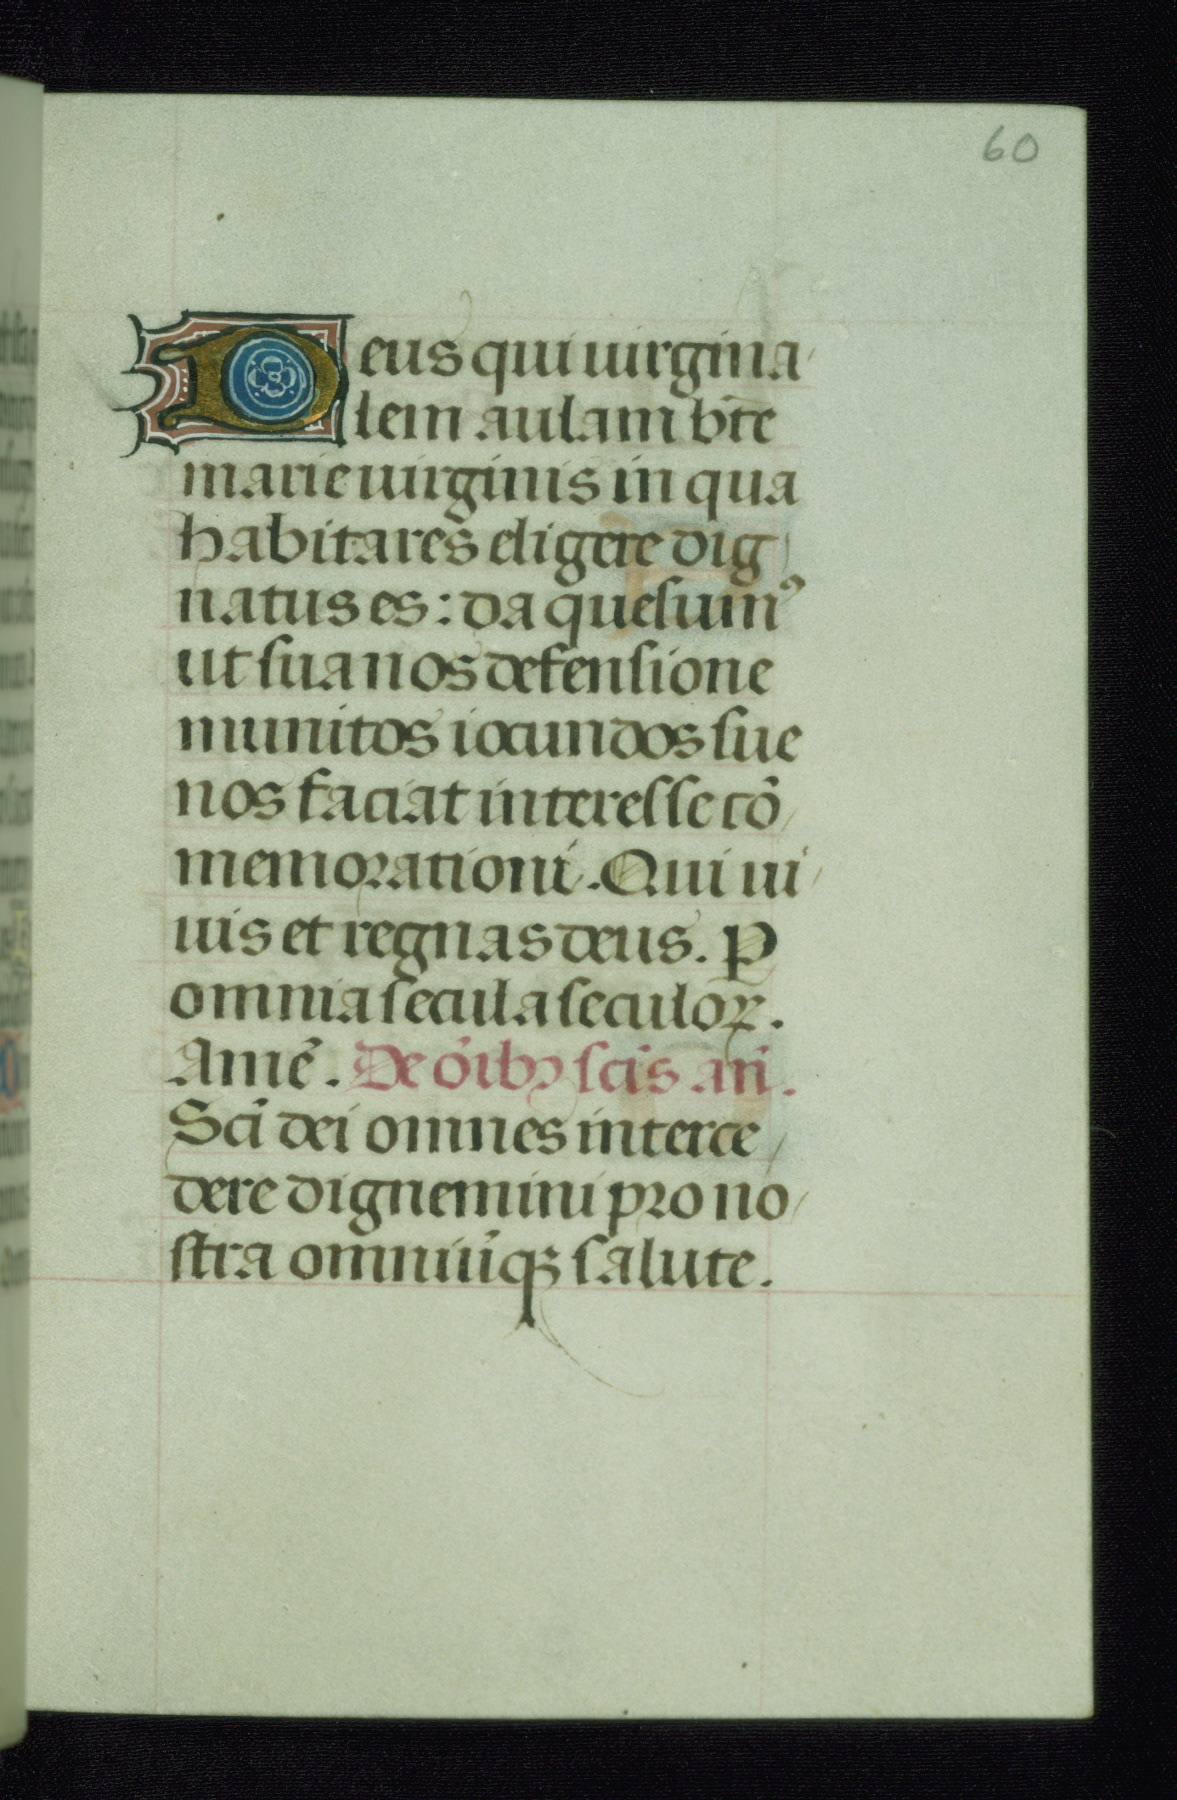 60
Deus qui uirgina
lem aulam bt̄e
marie uirginis in qua
habitares eligere dig
natus es: da quesumꝰ
ut sua nos defensione
munitos iocundos sue
nos faciat interesse cō
memorationi. Qui ui
uis et regnas deus. P
omnia secula seculoꝝ.
Amē. De oībꝫ scīs an̄.
Scī dei omnes interce
dere dignemini pro no
stra omniūqꝫ salute.